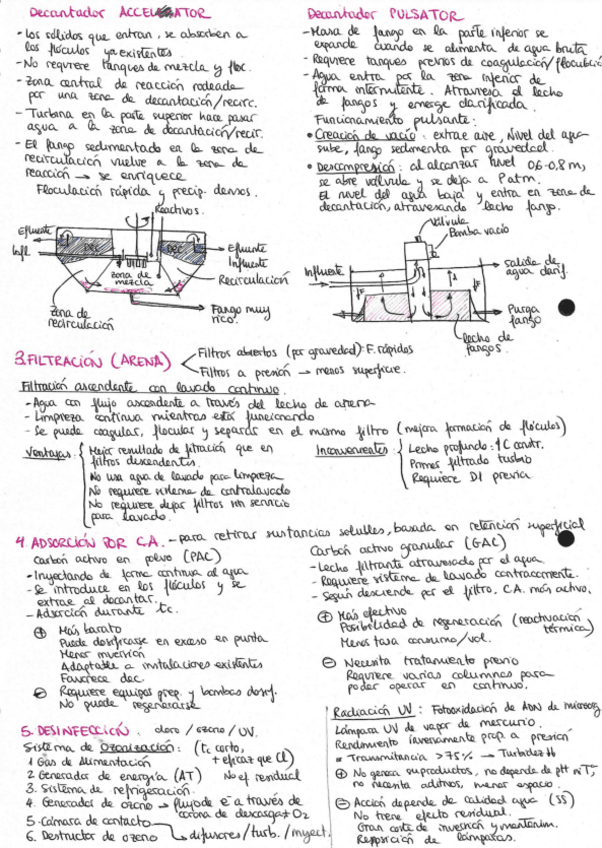 Decantador ACCELERATOR
- Los sólidos que entran, se absorben a
los flóculos ya existentes.
- No requiere tanques de mezcla y floc.
- Zona central de reacción rodeada
por una zona de decantación/recirc.
- Turbina en la parte superior hace pasar
agua a la zona de decantación/recir.
- El fango sedimentado en la zona de
recirculación vuelve a la zona de
reacción → se enriquece
Floculación rápida y precip. densos.
Reactivos.
Efluente
Infl
DEC
DEC
Efluente
Influente
Recirculación
zona de
mezcla
zona de
recirculación
Fango muy
rico.
Decantador PULSATOR
- Masa de fango en la parte inferior se
expande cuando se alimenta de agua bruta
- Requiere tanques previos de coagulación/floculación
- Agua entra por la zona inferior de
forma intermitente. Atraviesa el lecho
de fangos y emerge clarificada.
Funcionamiento pulsante:
• Creación de vacío: extrae aire, Nivel del agua
sube, fango sedimenta por gravedad.
• Descompresión: al alcanzar nivel 0,6-0,8m,
se abre válvula y se deja a Patm.
El nivel del agua baja y entra en zona de
decantación, atravesando lecho fango.
Válvula
Bomba vacío
Influente
Salida de
agua clarif.
Purga
fango
lecho de
fangos.
3. FILTRACIÓN (ARENA)
Filtros abiertos (por gravedad): F. rápidos
Filtros a presión → menos superficie.
Filtración ascendente con lavado continuo.
- Agua con flujo ascendente a través del lecho de arena
- Limpieza continua mientras está funcionando
- Se puede coagular, flocular y separar en el mismo filtro (mejora formación de flóculos)
Ventajas:
Mejor resultado de filtración que en
filtros descendentes.
No usa agua de lavado para limpieza
No requiere sistema de contralavado
No requiere dejar filtros sin servicio
para lavado.
Inconvenientes:
Lecho profundo: ↑C constr.
Primer filtrado turbio
Requiere DI previa
4. ADSORCIÓN POR C.A. - para retirar sustancias solubles, basada en retención superficial
Carbón activo en polvo (PAC)
- Inyectando de forma continua al agua
- Se introduce en los flóculos y se
extrae al decantar.
- Adsorción durante tc.
⊕ Más barato
Puede dosificarse en exceso en punta
Menor inversión
Adaptable a instalaciones existentes
Favorece dec.
⊖ Requiere equipos prep. y bombas dosif.
No puede regenerarse
Carbón activo granular (GAC)
- Lecho filtrante atravesado por el agua
- Requiere sistema de lavado contracorriente.
- Según desciende por el filtro, C.A. más activo.
⊕ Más efectivo
Posibilidad de regeneración (reactivación
térmica)
Menos tasa consumo/vol.
⊖ Necesita tratamiento previo
Requiere varias columnas para
poder operar en continuo.
5. DESINFECCIÓN. cloro / ozono / UV.
Sistema de Ozonización: (tc corto,
+ eficaz que Cl)
1 Gas de Alimentación
2 Generador de energía (AT) No ef residual
3. Sistema de refrigeración.
4. Generador de ozono → flujo de e- a través de
corona de descarga + O2
5. Cámara de contacto → difusores/turb./inyect.
6. Destructor de ozono
Radiación UV: Fotooxidación de ADN de microorg
Lámpara UV de vapor de mercurio.
Rendimiento inversamente prop. a presión
* Transmitancia >75% → Turbidez
⊕ No genera subproductos, no depende de pH ni T,
no necesita aditivos, menor espacio.
⊖ Acción depende de calidad agua (SS)
No tiene efecto residual.
Gran coste de inversión y mantenim.
Reposición de lámparas.